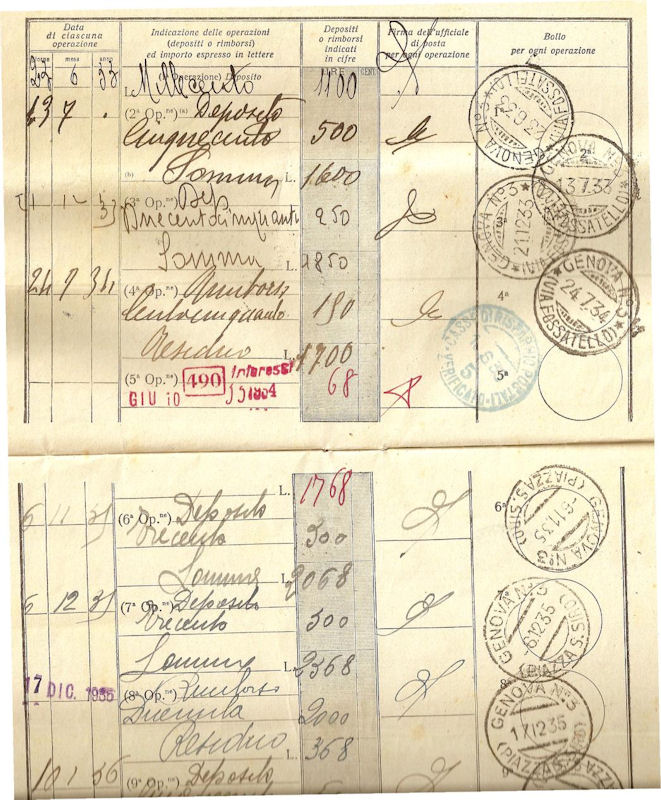 Data
di ciascuna
operazione
Indicazione delle operazioni
(depositi o rimborsi)
ed importo espresso in lettere
Depositi
o rimborsi
indicati
in cifre
Firma dell'ufficiale
di posta
per ogni operazione
Bollo
per ogni operazione
giorno mese anno
LIRE CENT.
23 6 33
(1ª Operazione) Deposito
L. Millecento 1100
13 7 .
(2ª Op.ne) (a) Deposito
Cinquecento 500
(b) Somma L. 1600
(3ª Op.ne) Dep
Duecentocinquanta 250
Somma L. 1850
24 7 34
(4ª Op.ne) Rimborso
Centocinquanta 150
Residuo L. 1700
(5ª Op.ne) 490 Interessi
GIU 10 1934 68
L. 1768
6 11 35
(6ª Op.ne) Deposito
Trecento 300
Somma L. 2068
6 12 35
(7ª Op.ne) Deposito
Trecento 300
Somma L. 2368
17 DIC. 1935
(8ª Op.ne) Rimborso
Duemila 2000
Residuo L. 368
10 1 36
(9ª Op.ne) Deposito
GENOVA Nº 3
(VIA FOSSATELLO)
2ª
GENOVA Nº 3
13.7.33
(VIA FOSSATELLO)
3ª
GENOVA Nº 3
21.12.33
(VIA FOSSATELLO)
4ª
GENOVA Nº 3
24.7.34
(VIA FOSSATELLO)
5ª
CASSE DI RISPARMIO POSTALI
VERIFICATO
6ª
GENOVA Nº 3
6.11.35
(PIAZZA S. SIRO)
GENOVA Nº 3
6.12.35
(PIAZZA S. SIRO)
GENOVA Nº 3
17.12.35
(PIAZZA S. SIRO)
9ª